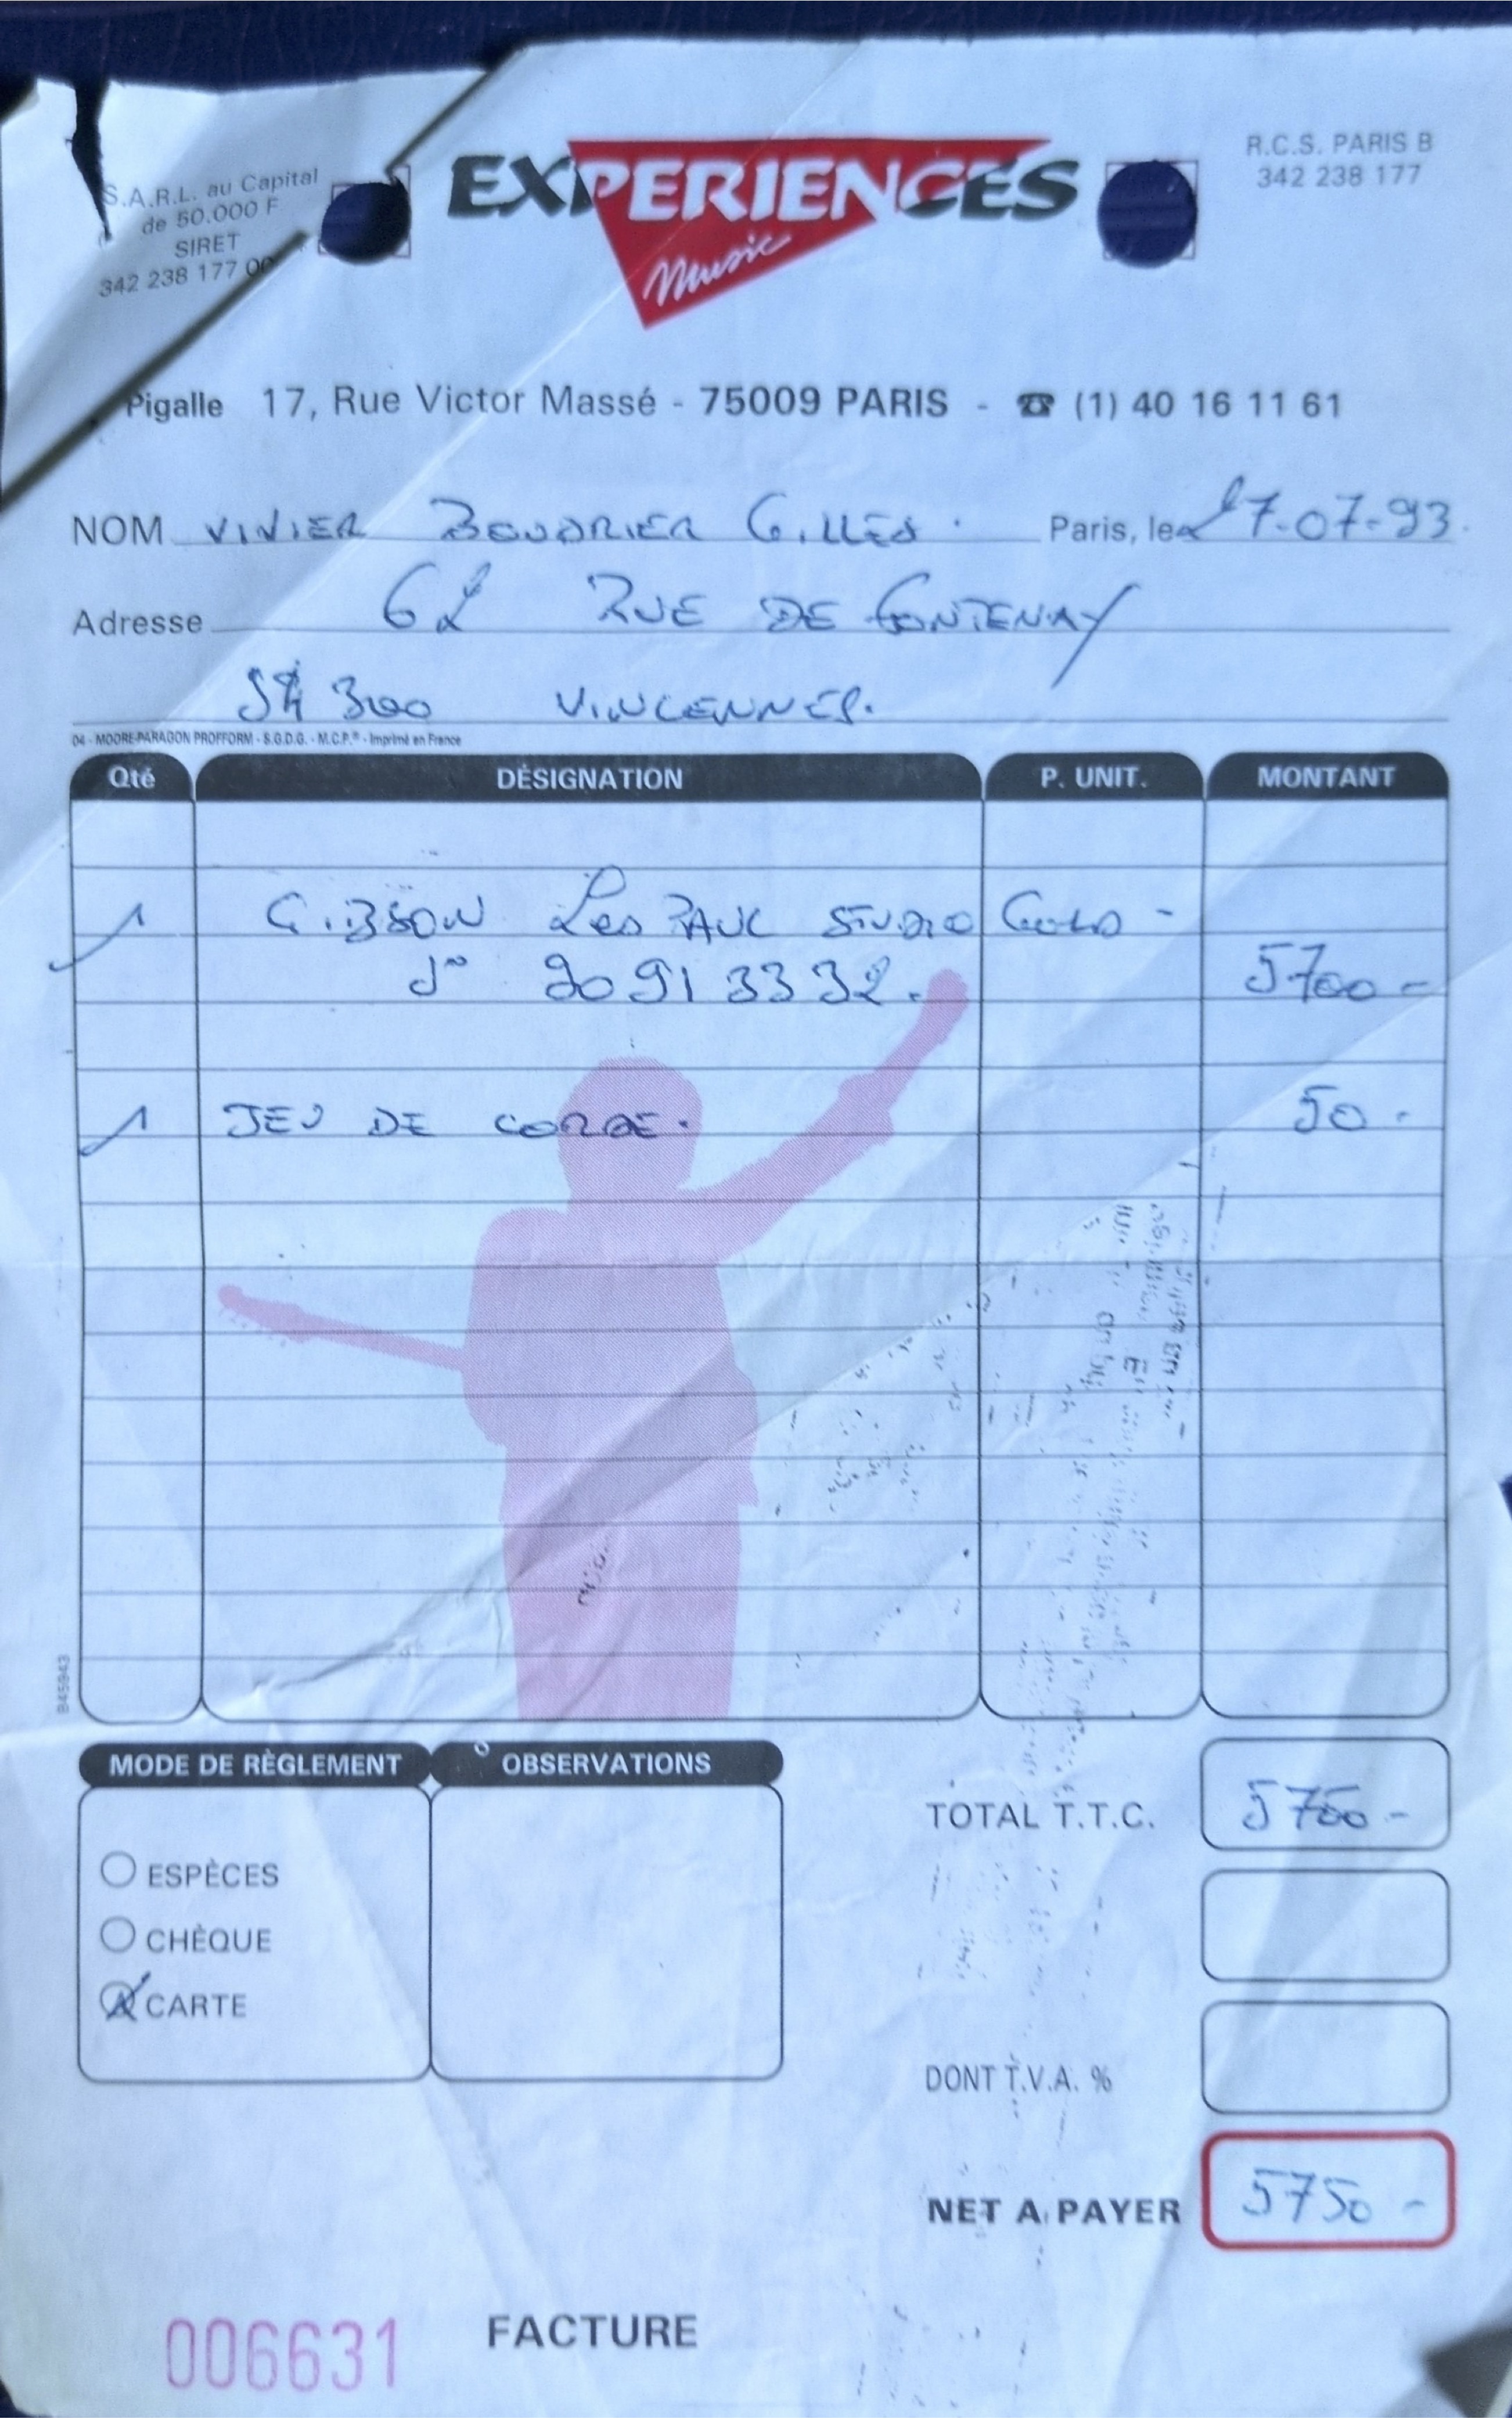 S.A.R.L. au Capital
de 50.000 F
SIRET
342 238 177 00
EXPERIENCES
Music
R.C.S. PARIS B
342 238 177
Pigalle 17, Rue Victor Massé - 75009 PARIS - ☎ (1) 40 16 11 61
NOM VIVIER BOUDRIER GILLES. Paris, le 27-07-93.
Adresse 62 RUE DE FONTENAY
94 300 VINCENNES.
04 - MOORE-PARAGON PROFFORM - S.G.D.G. - M.C.P.® - Imprimé en France
Qté DÉSIGNATION P. UNIT. MONTANT
1 GIBSON Les PAUL STUDIO GOLD -
90913332. 5700 -
1 JEU DE CORDE. 50 -
B45943
MODE DE RÈGLEMENT OBSERVATIONS
TOTAL T.T.C. 5750 -
ESPÈCES
CHÈQUE
CARTE
DONT T.V.A. %
NET A PAYER 5750 -
006631 FACTURE